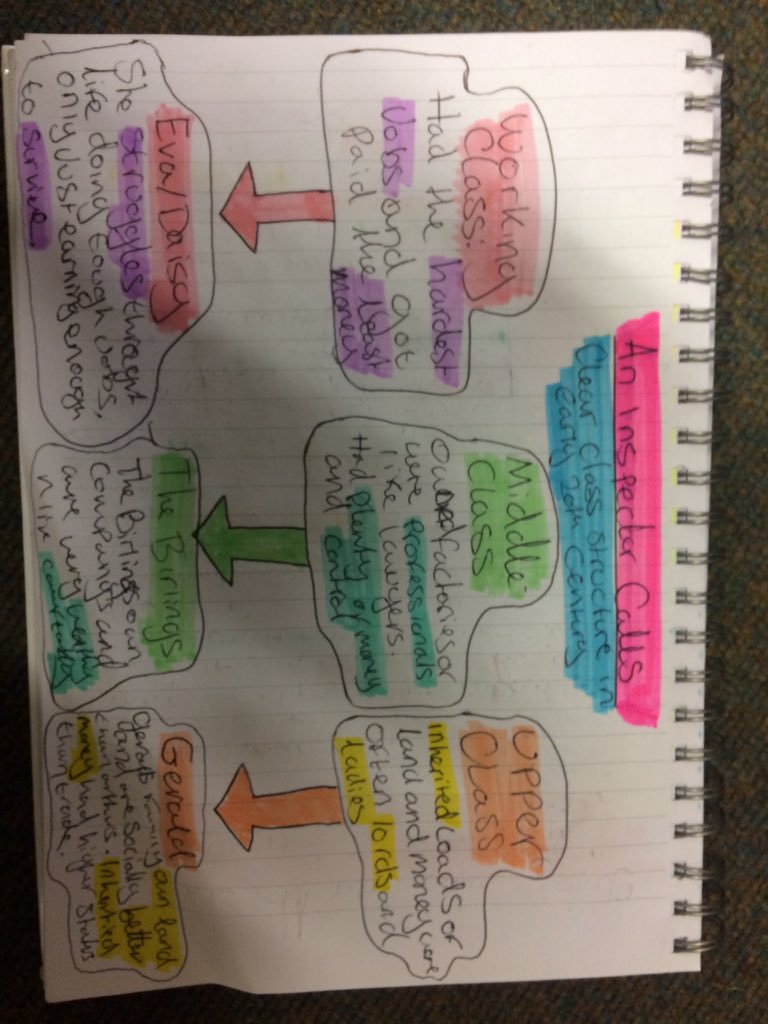 An Inspector Calls
Clear class structure in
early 20th century
Working
Class:
Had the hardest
Jobs and got
paid the least
money
Eva/Daisy
She struggles throught
life doing tough Jobs,
only Just earning enough
to survive
Middle-
Class
Owned factories or
were professionals
like lawyers.
Had plenty of money
and control
The Birlings
The Birlings own
companys and
are very wealthy
n live comfortabley
Upper
Class
inherited loads of
land and money were
often lords and
ladies
Gerald
Geralds family own land
land are socially better
than arthurs. Inhertied
money had higher status
than trade.